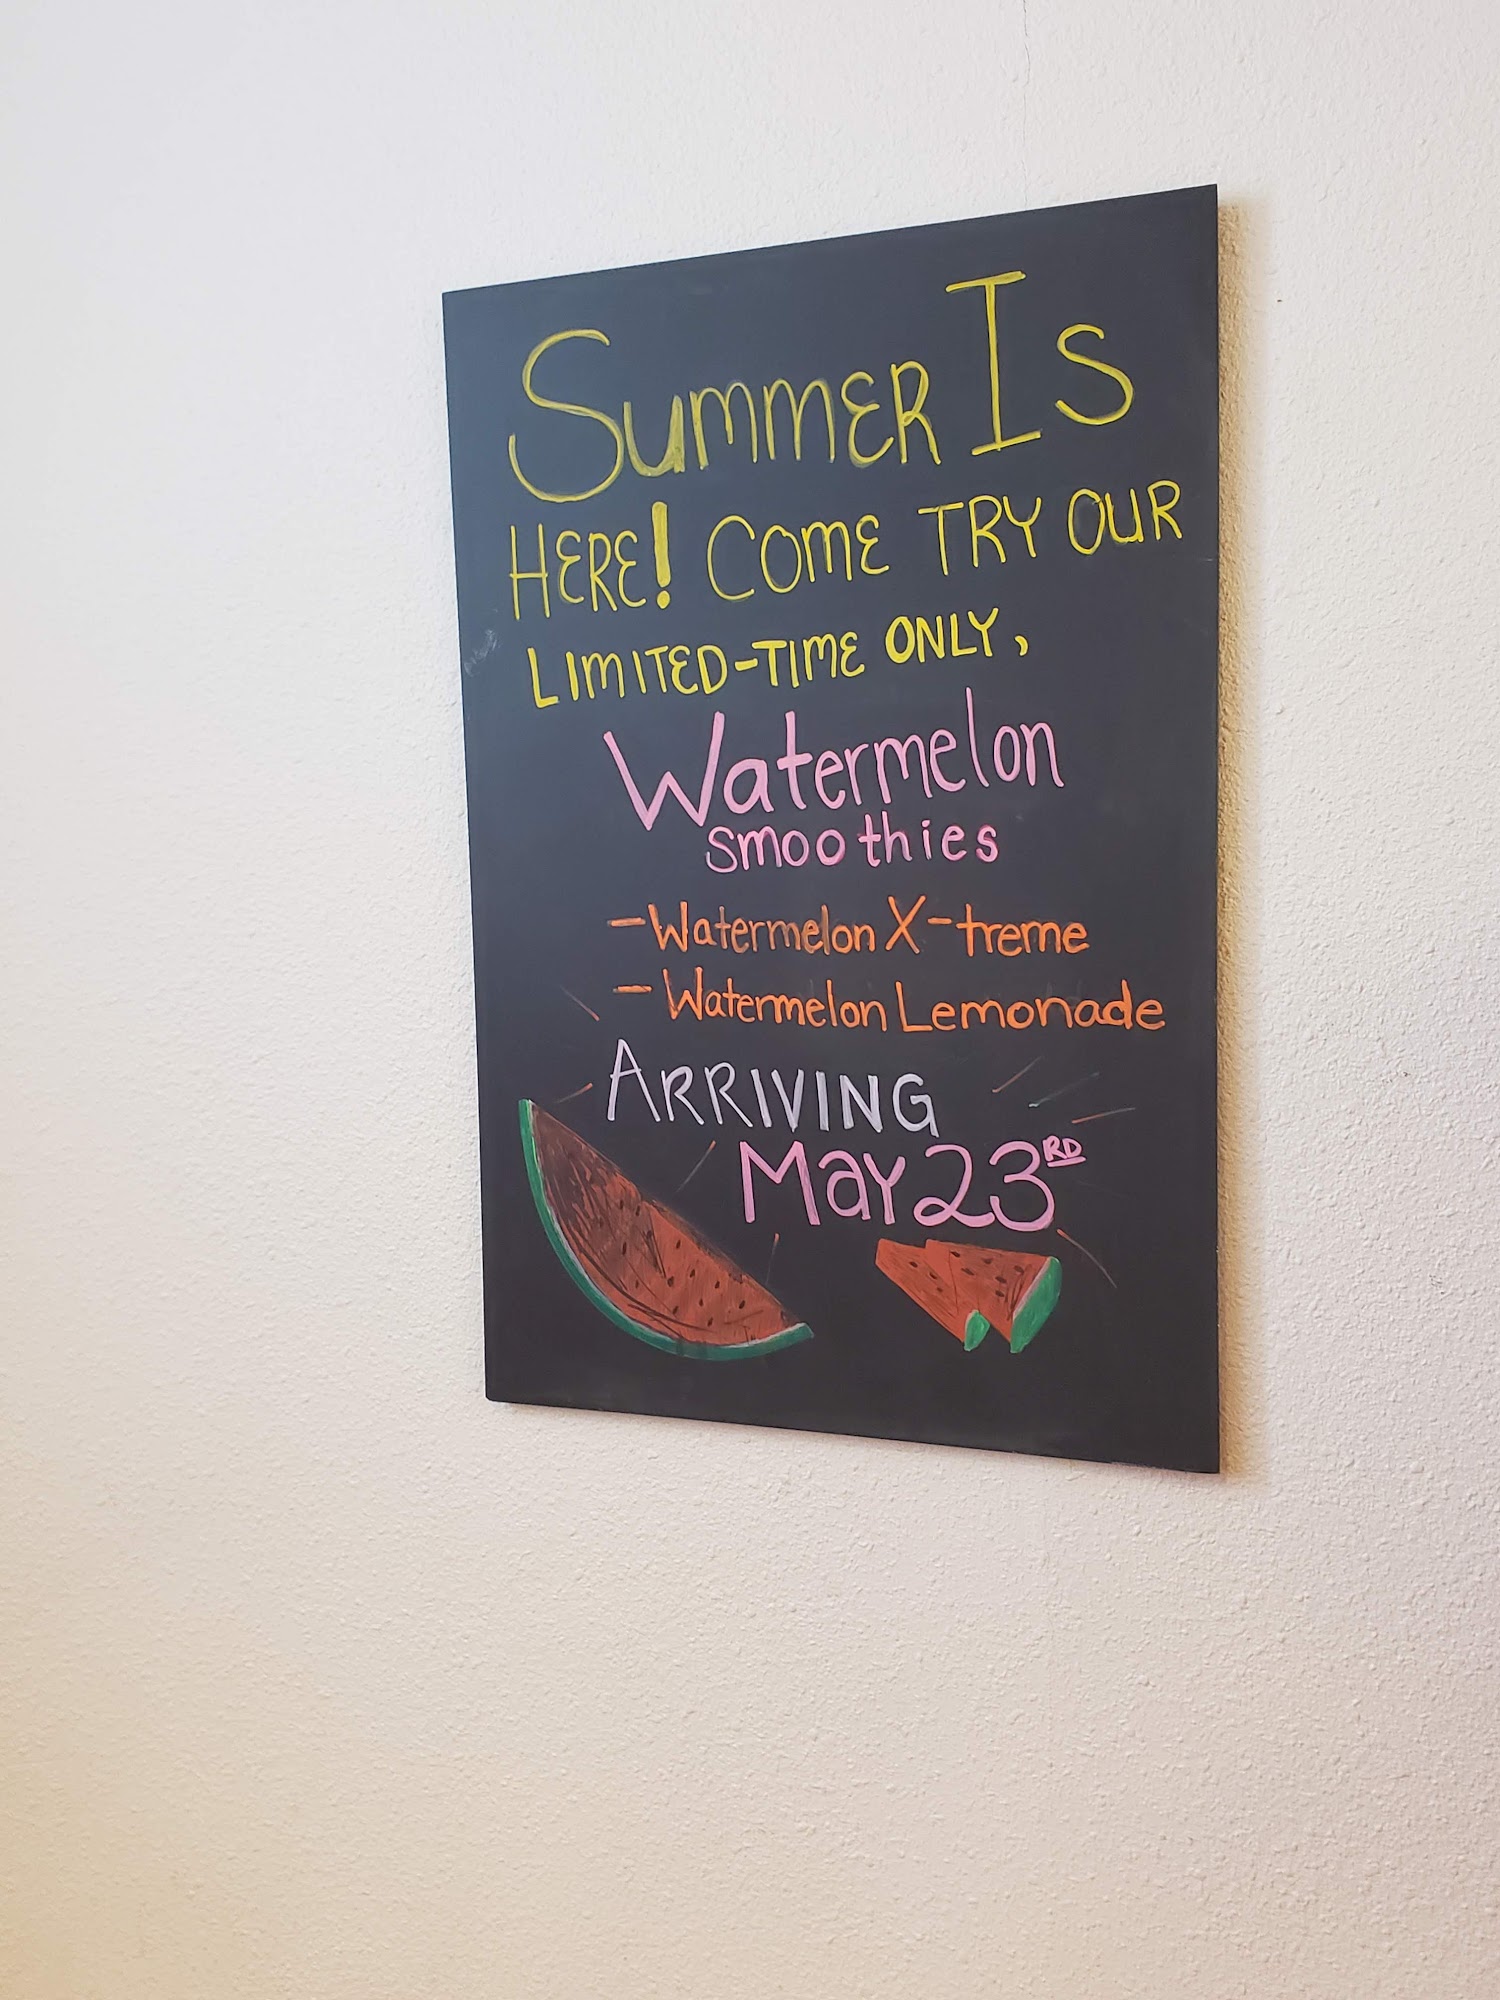 Summer Is
HERE! COME TRY OUR
LIMITED-TIME ONLY,
Watermelon
smoothies
- Watermelon X-treme
- Watermelon Lemonade
ARRIVING
May 23RD